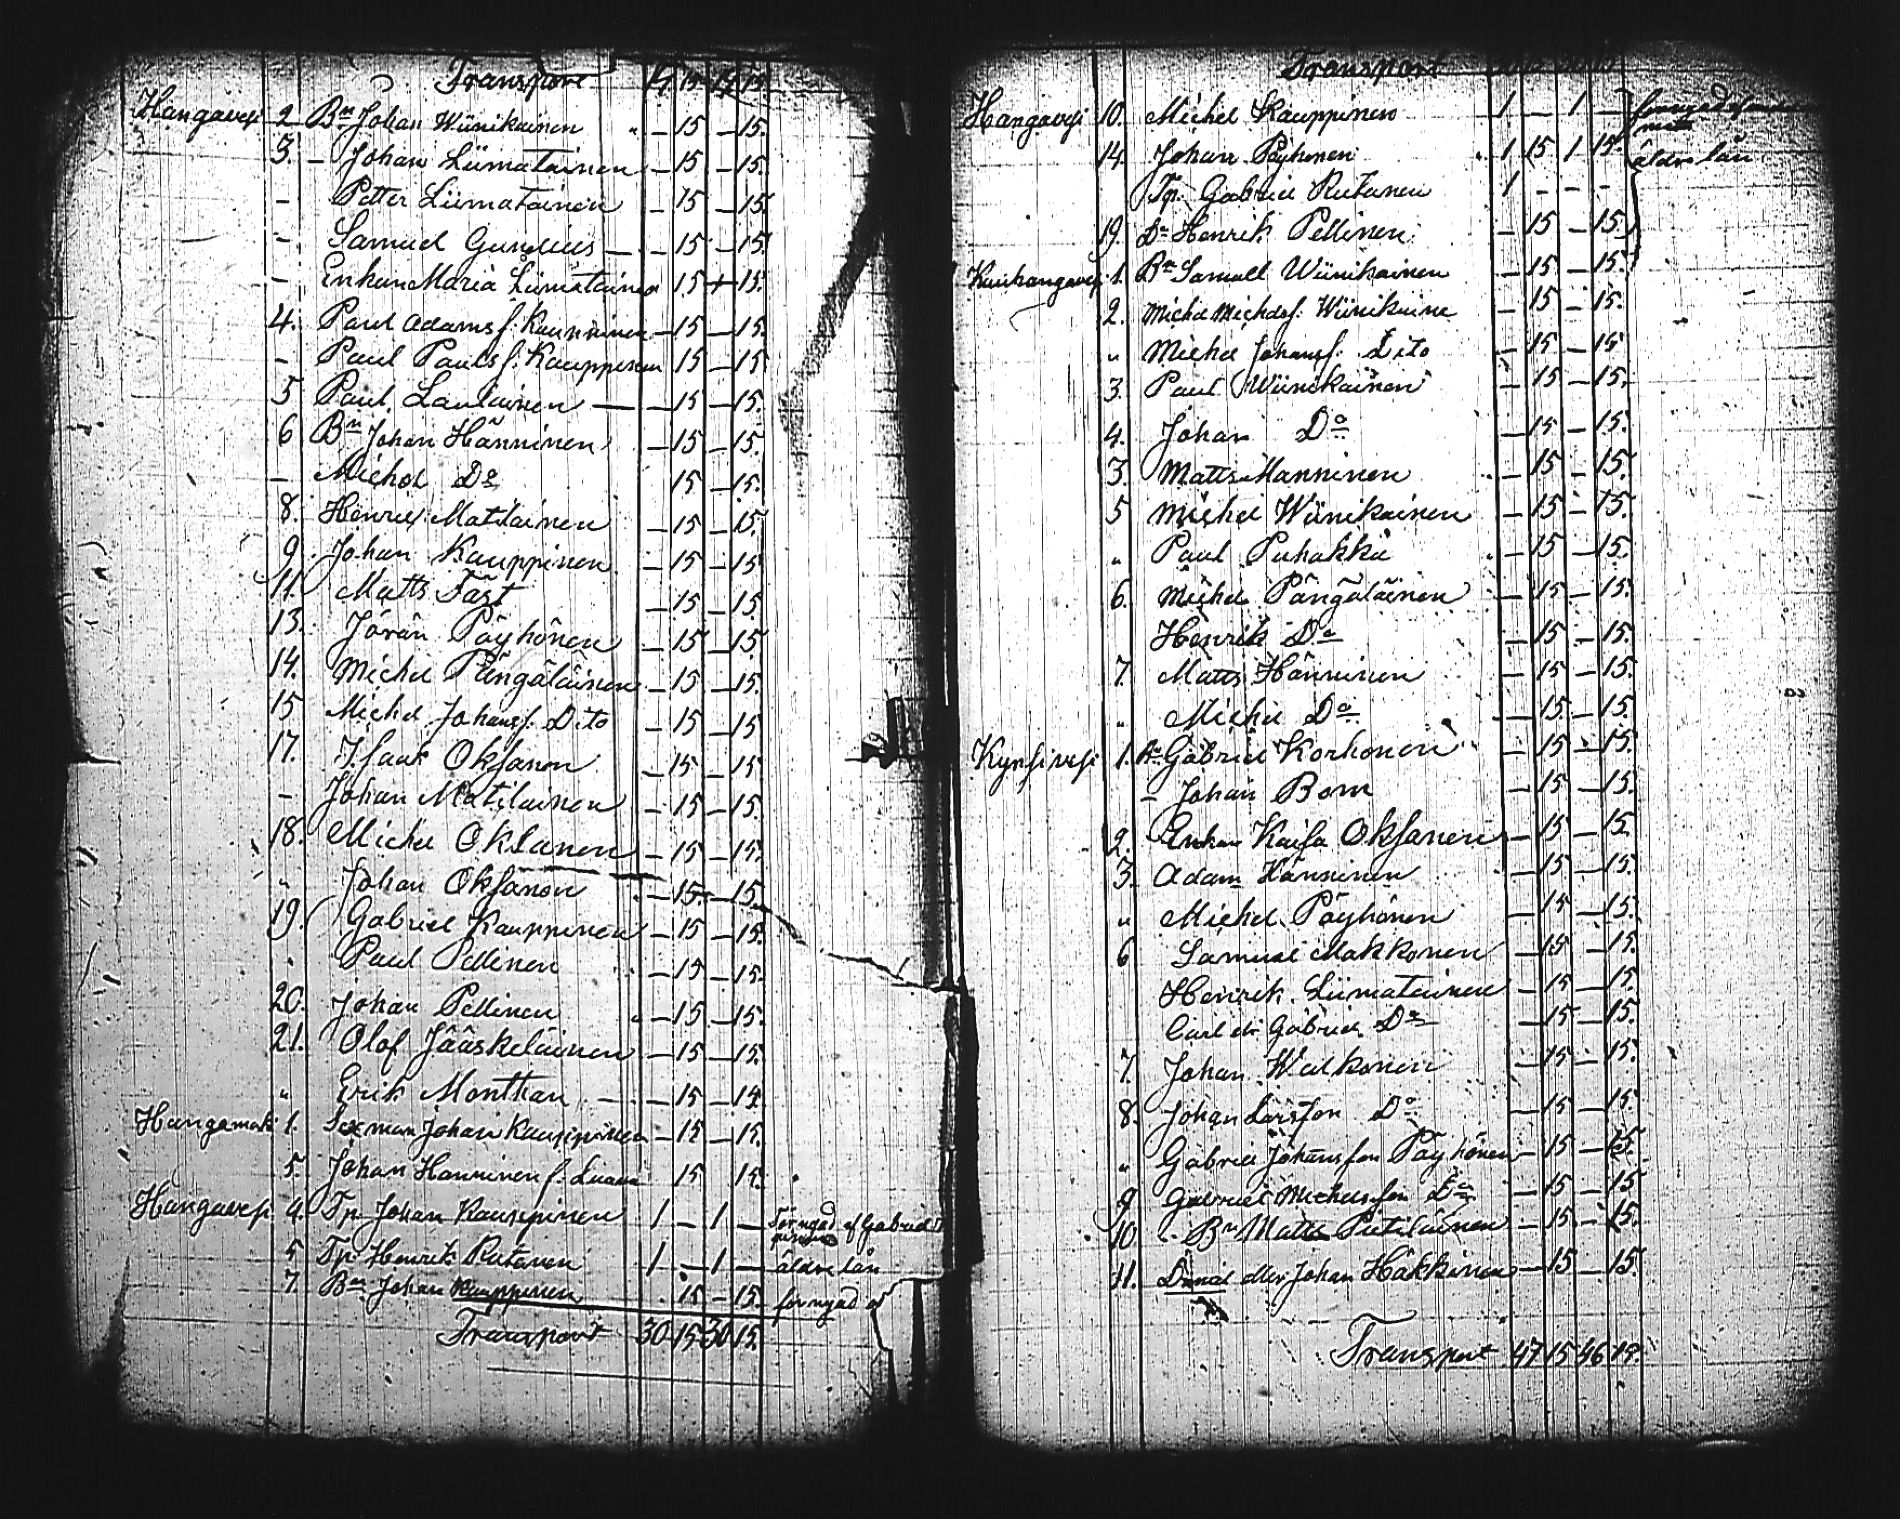 Transport 14 15 14 15
Hangavesi 2 Bn Johan Wiinikainen — 15 — 15.
3. — Johan Liimatainen — 15 — 15.
— Petter Liimatainen — 15 — 15.
— Samuel Gunelius — — 15 — 15.
— Enkan Maria Liimatainen 15 — 15.
4. Paul Adamsf. Kauppinen — 15 — 15.
— Paul Paulsf. Kauppinen 15 — 15
5 Paul Laulainen — — 15 — 15.
6 Bn Johan Hänninen — 15 — 15.
— Michel Do 15 — 15.
8. Henric Matilainen — 15 — 15.
9. Johan Kauppinen — 15 — 15.
11. Matts Fäst — 15 — 15.
13. Jöran Pöyhönen — 15 — 15
14. Michel Pängäläinen — 15 — 15.
15 Michel Johansf. Dito — 15 — 15
17. Isaak Oksanen — 15 — 15
— Johan Matilainen — 15 — 15.
18. Michel Oksanen — 15 — 15.
" Johan Oksanen — 15 — 15.
19. Gabriel Kauppinen — 15 — 15.
" Paul Pellinen — 15 — 15.
20. Johan Pellinen — 15 — 15.
21. Olof Jääskeläinen — 15 — 15.
" Erik Monthan — — 15 — 15.
Hangamäk 1. Sexman Johan Kauppinen — 15 — 15.
5. Johan Hänninen f. 15 15.
Hangavesi 4. Tp Johan Kauppinen 1 — 1 — förnyad af Gabriel
5 Tp Henrik Rutanen 1 — 1 — äldre lån
7. Bn Johan Kauppinen 15 — 15. förnyad af
Transport 30 15 30 15
Transport
Hangavesi 10. Michel Kauppinen 1 — 1 —
14. Johan Pöyhönen 1 15 1 15. äldre lån
Tp. Gabriel Rutanen 1 — — —
19. Dn Henrik Pellinen — 15 — 15.
1. Bn Samuel Wiinikainen — 15 — 15.
2. Michel Michelsf. Wiinikaine — 15 — 15.
" Michel Johansf. Dito — 15 — 15
3. Paul Wiinikainen — 15 — 15.
4. Johan Do — 15 — 15.
3. Matts Hänninen — 15 — 15.
5 Michel Wiinikainen — 15 — 15.
" Paul Puhakka — 15 — 15.
6. Michel Pängäläinen — 15 — 15.
Henrik Do — 15 — 15.
7. Matts Hänninen — 15 — 15.
" Michel Do — 15 — 15.
Kynsivesi 1. Bn Gabriel Korhonen — 15 — 15.
— Johan Bom — 15 — 15.
2. Enkan Kaisa Oksanen — 15 — 15.
3. Adam Hänninen — 15 — 15.
" Michel Pöyhönen — 15 — 15.
6 Samuel Makkonen — 15 — 15.
Henrik Liimatainen — 15 — 15.
Carl el. Gabriel Do — 15 — 15.
7. Johan Walkonen — 15 — 15.
8. Johan Larsson Do — 15 — 15.
" Gabriel Johansson Pöyhönen — 15 — 15.
9 Gabriel Michelsson Do — 15 — 15
10. Bn Matts Putilainen — 15 — 15.
11. Daniel eller Johan Häkkinen — 15 — 15.
Transport 47 15 46 15.